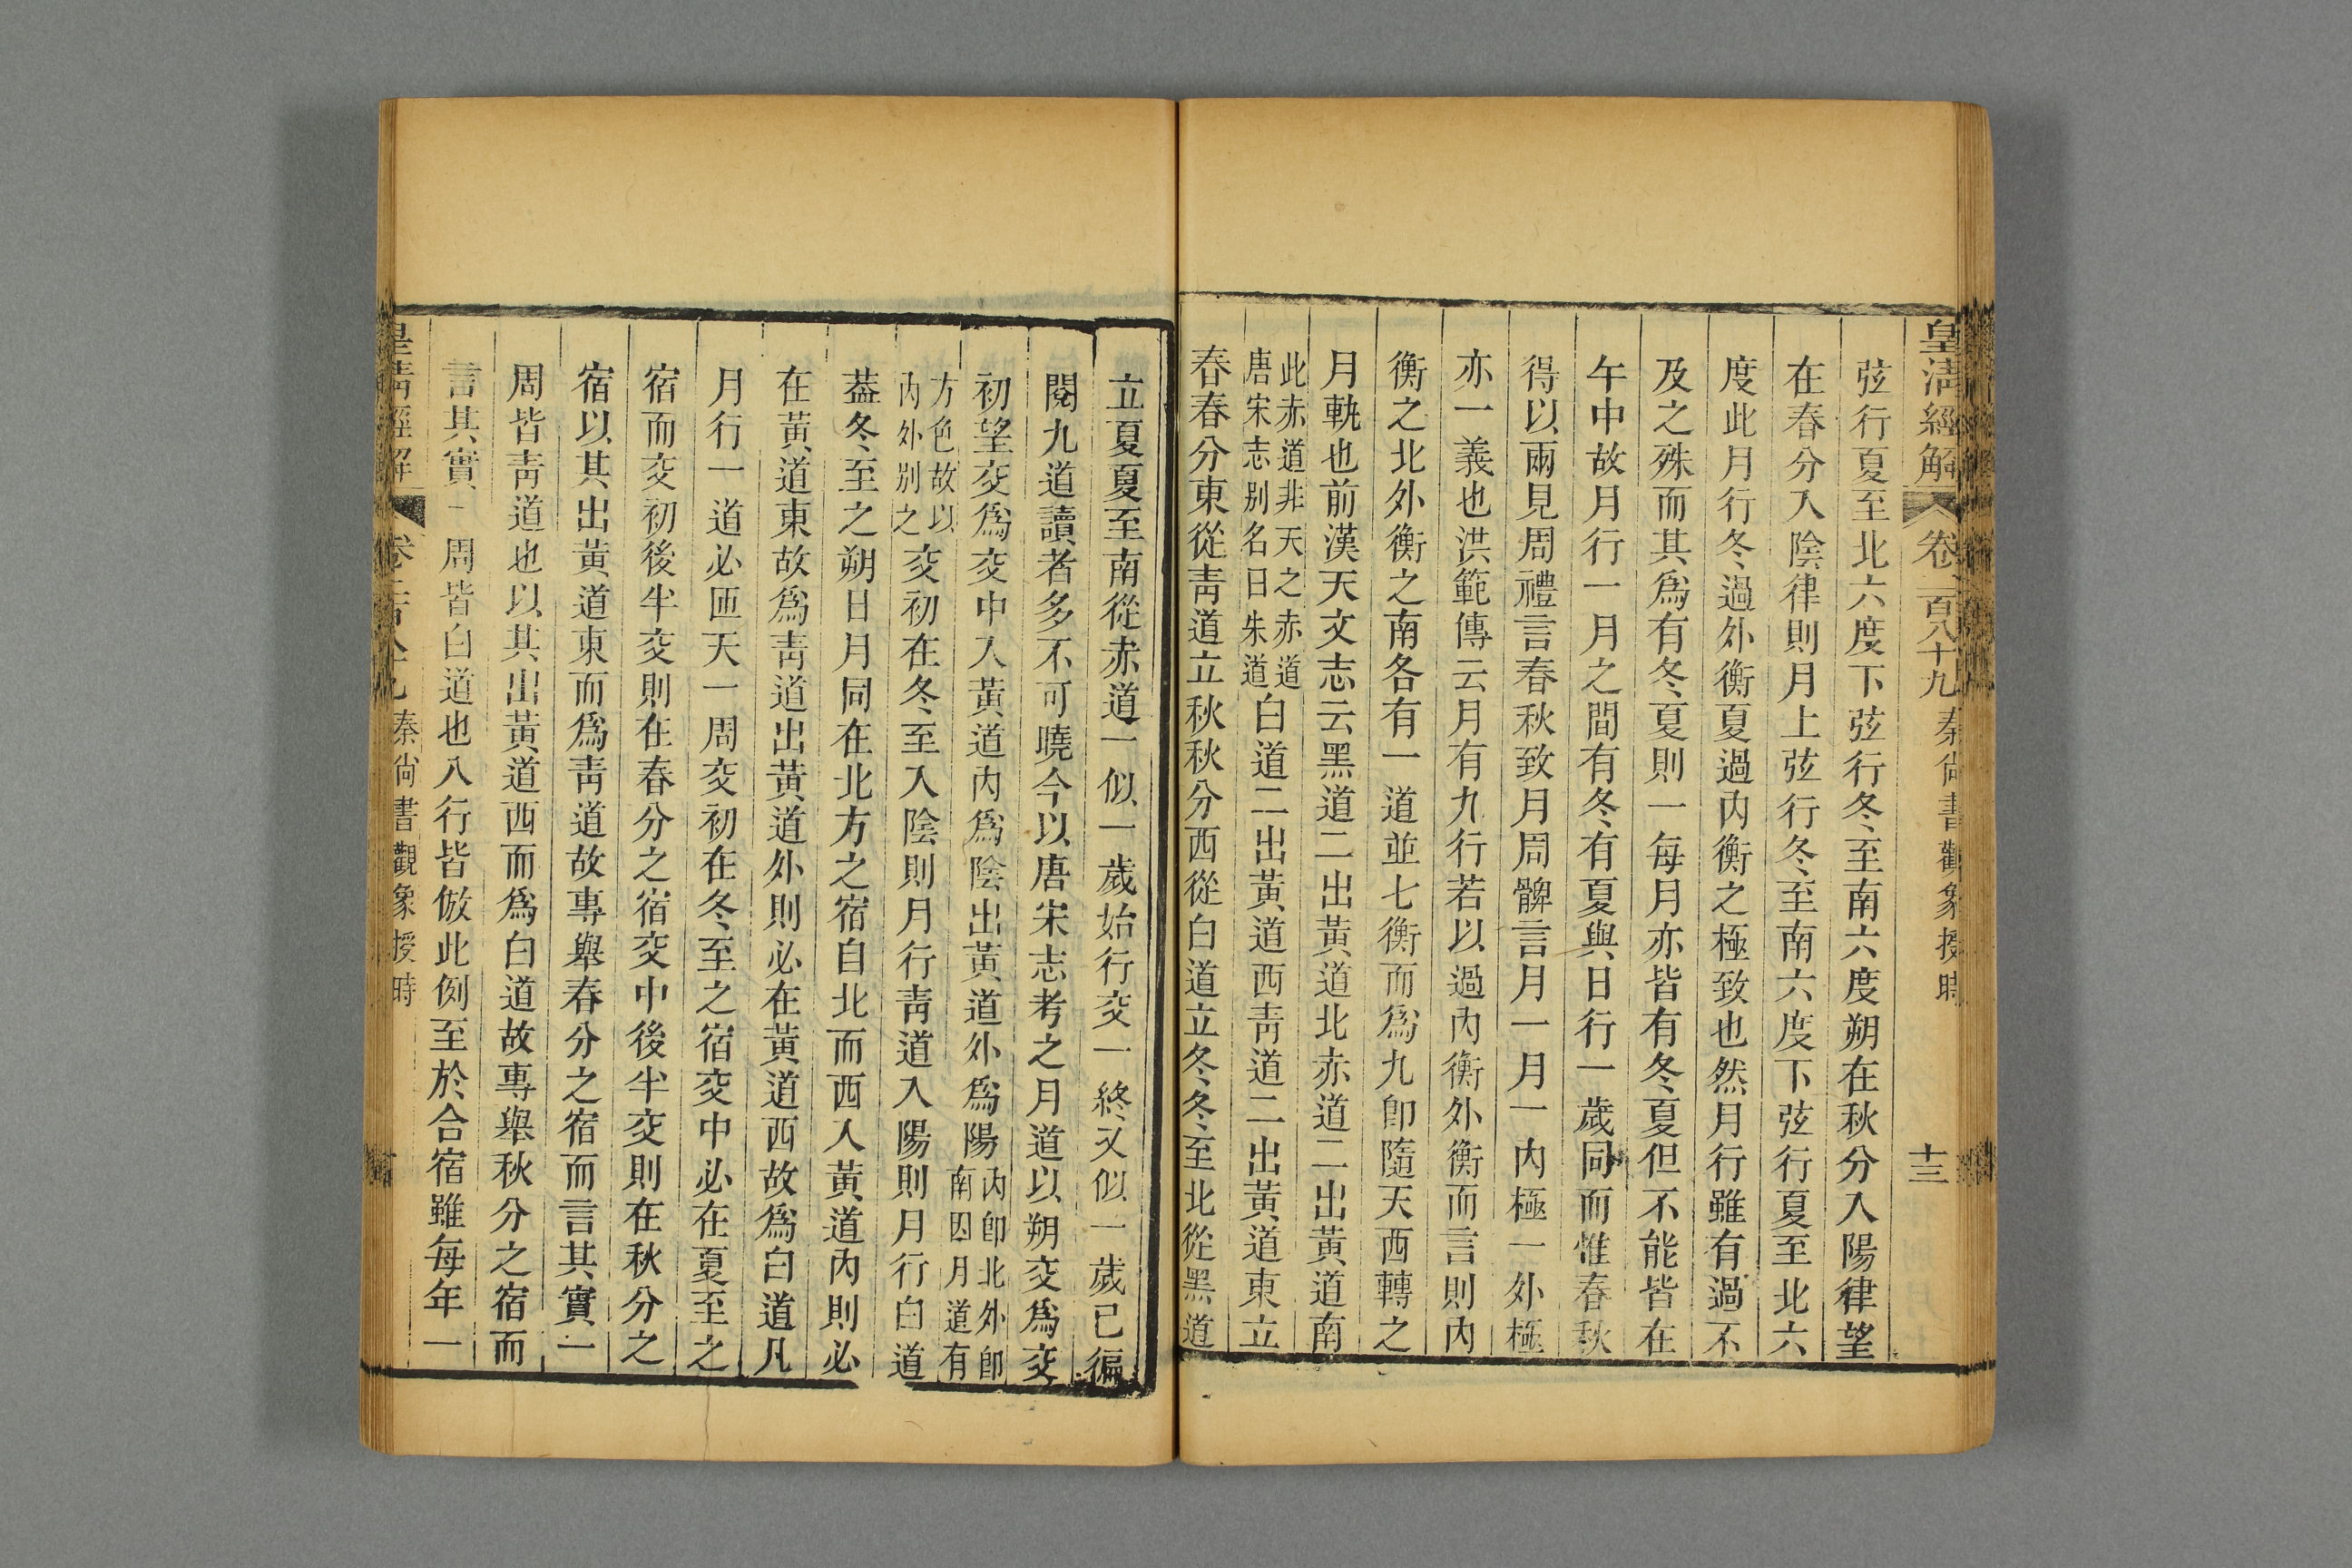 皇清經解 卷二百八十九 秦尚書觀象授時 十三
弦行夏至北六度下弦行冬至南六度朔在秋分入陽律望
在春分入陰律則月上弦行冬至南六度下弦行夏至北六
度此月行冬過外衡夏過內衡之極致也然月行雖有過不
及之殊而其爲有冬夏則一每月亦皆有冬夏但不能皆在
午中故月行一月之間有冬有夏與日行一歲同而惟春秋
得以兩見周禮言春秋致月周髀言月一月一內極一外極
亦一義也洪範傳云月有九行若以過內衡外衡而言則內
衡之北外衡之南各有一道並七衡而爲九卽隨天西轉之
月軌也前漢天文志云黑道二出黃道北赤道二出黃道南
此赤道非天之赤道
唐宋志别名曰朱道
白道二出黃道西靑道二出黃道東立
春春分東從靑道立秋秋分西從白道立冬冬至北從黑道
立夏夏至南從赤道一似一歲始行交一終又似一歲已徧
閱九道讀者多不可曉今以唐宋志考之月道以朔交爲交
初望交爲交中入黃道內爲陰出黃道外爲陽
內卽北外卽
南因月道有
方色故以
內外别之
交初在冬至入陰則月行靑道入陽則月行白道
葢冬至之朔日月同在北方之宿自北而西入黃道內則必
在黃道東故爲靑道出黃道外則必在黃道西故爲白道凡
月行一道必匝天一周交初在冬至之宿交中必在夏至之
宿而交初後半交則在春分之宿交中後半交則在秋分之
宿以其出黃道東而爲靑道故專舉春分之宿而言其實一
周皆靑道也以其出黃道西而爲白道故專舉秋分之宿而
言其實一周皆白道也八行皆倣此例至於合宿雖每年一
皇清經解 卷二百八十九 秦尚書觀象授時